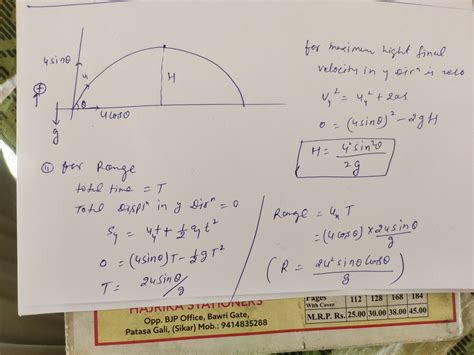 4sinθ
u
H
θ
+
g
ucosθ
for maximum hight final
velocity in y Dirⁿ is zero
Vy² = uy² + 2as
0 = (4sinθ)² - 2gH
H = 4²sin²θ / 2g
(ii) for Range
total time = T
Total Displⁿ in y Dirⁿ = 0
Sy = uyt + ½ay t²
0 = (4sinθ)T - ½gT²
T = 24sinθ / g
Range = ux T
= (4cosθ) × 24sinθ / g
(R = 24² sinθ cosθ / g)
HAJRIKA STATIONERS
Opp. BJP Office, Bawri Gate,
Patasa Gali, (Sikar) Mob.: 9414835288
Pages With Cover 112 128 168 184
M.R.P. Rs. 25.00 30.00 38.00 45.00